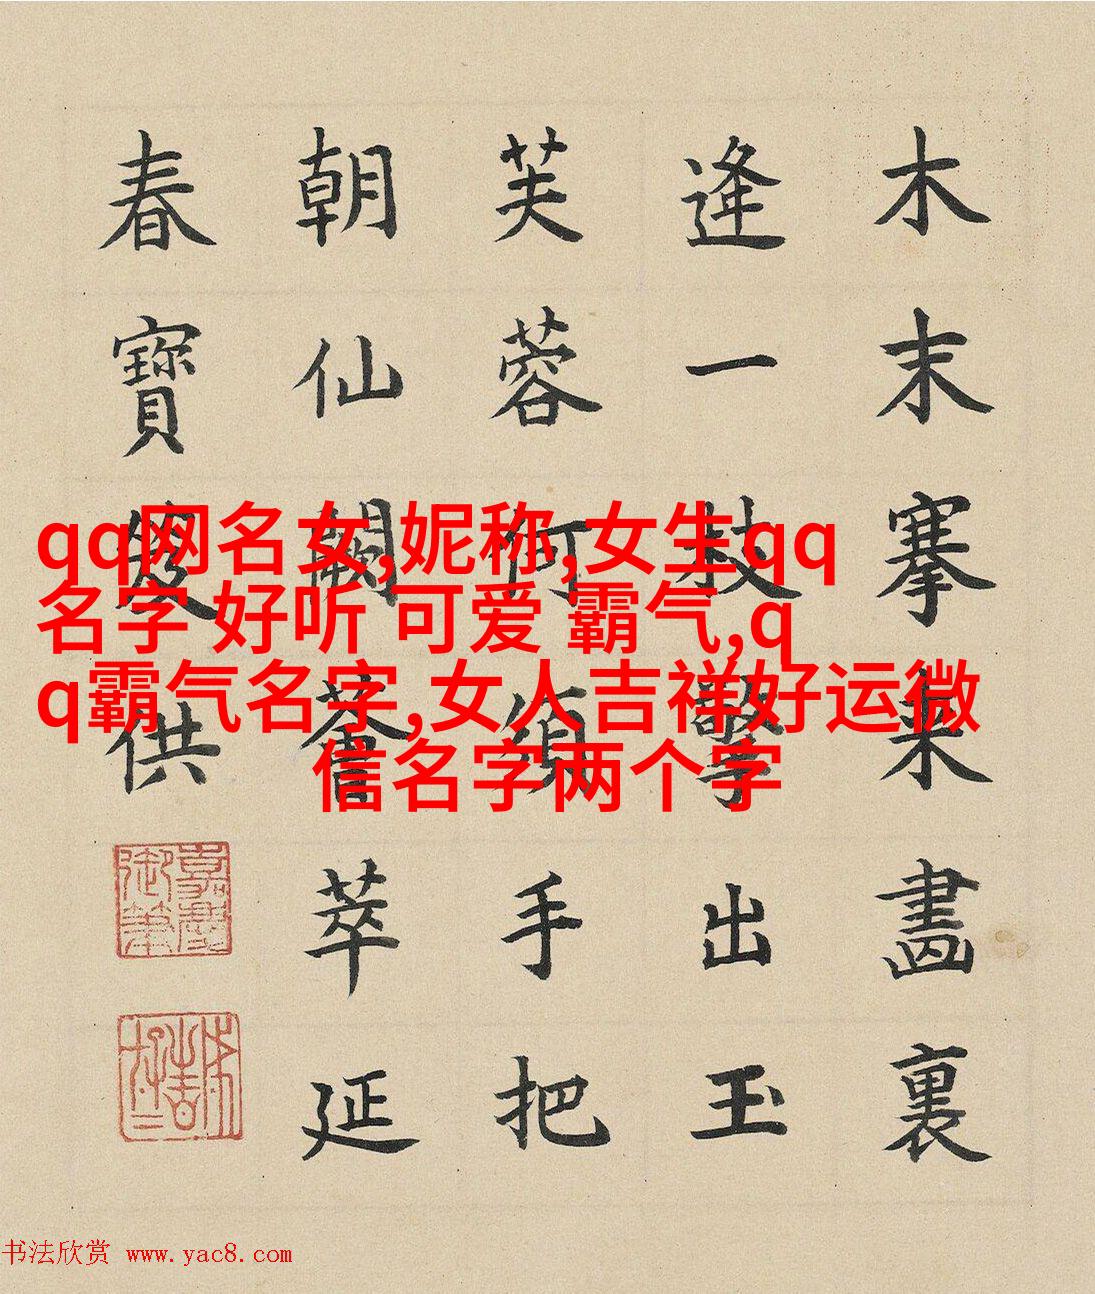 木末搴来畫裏
逢一枝擎出玉
芙蓉何須手把
朝仙闕薈萃延
春寶供
嘉慶御筆
qq网名女,妮称,女生qq
名字 好听 可爱 霸气,q
q霸气名字,女人吉祥好运微
信名字两个字
书法欣赏 www.yac8.com